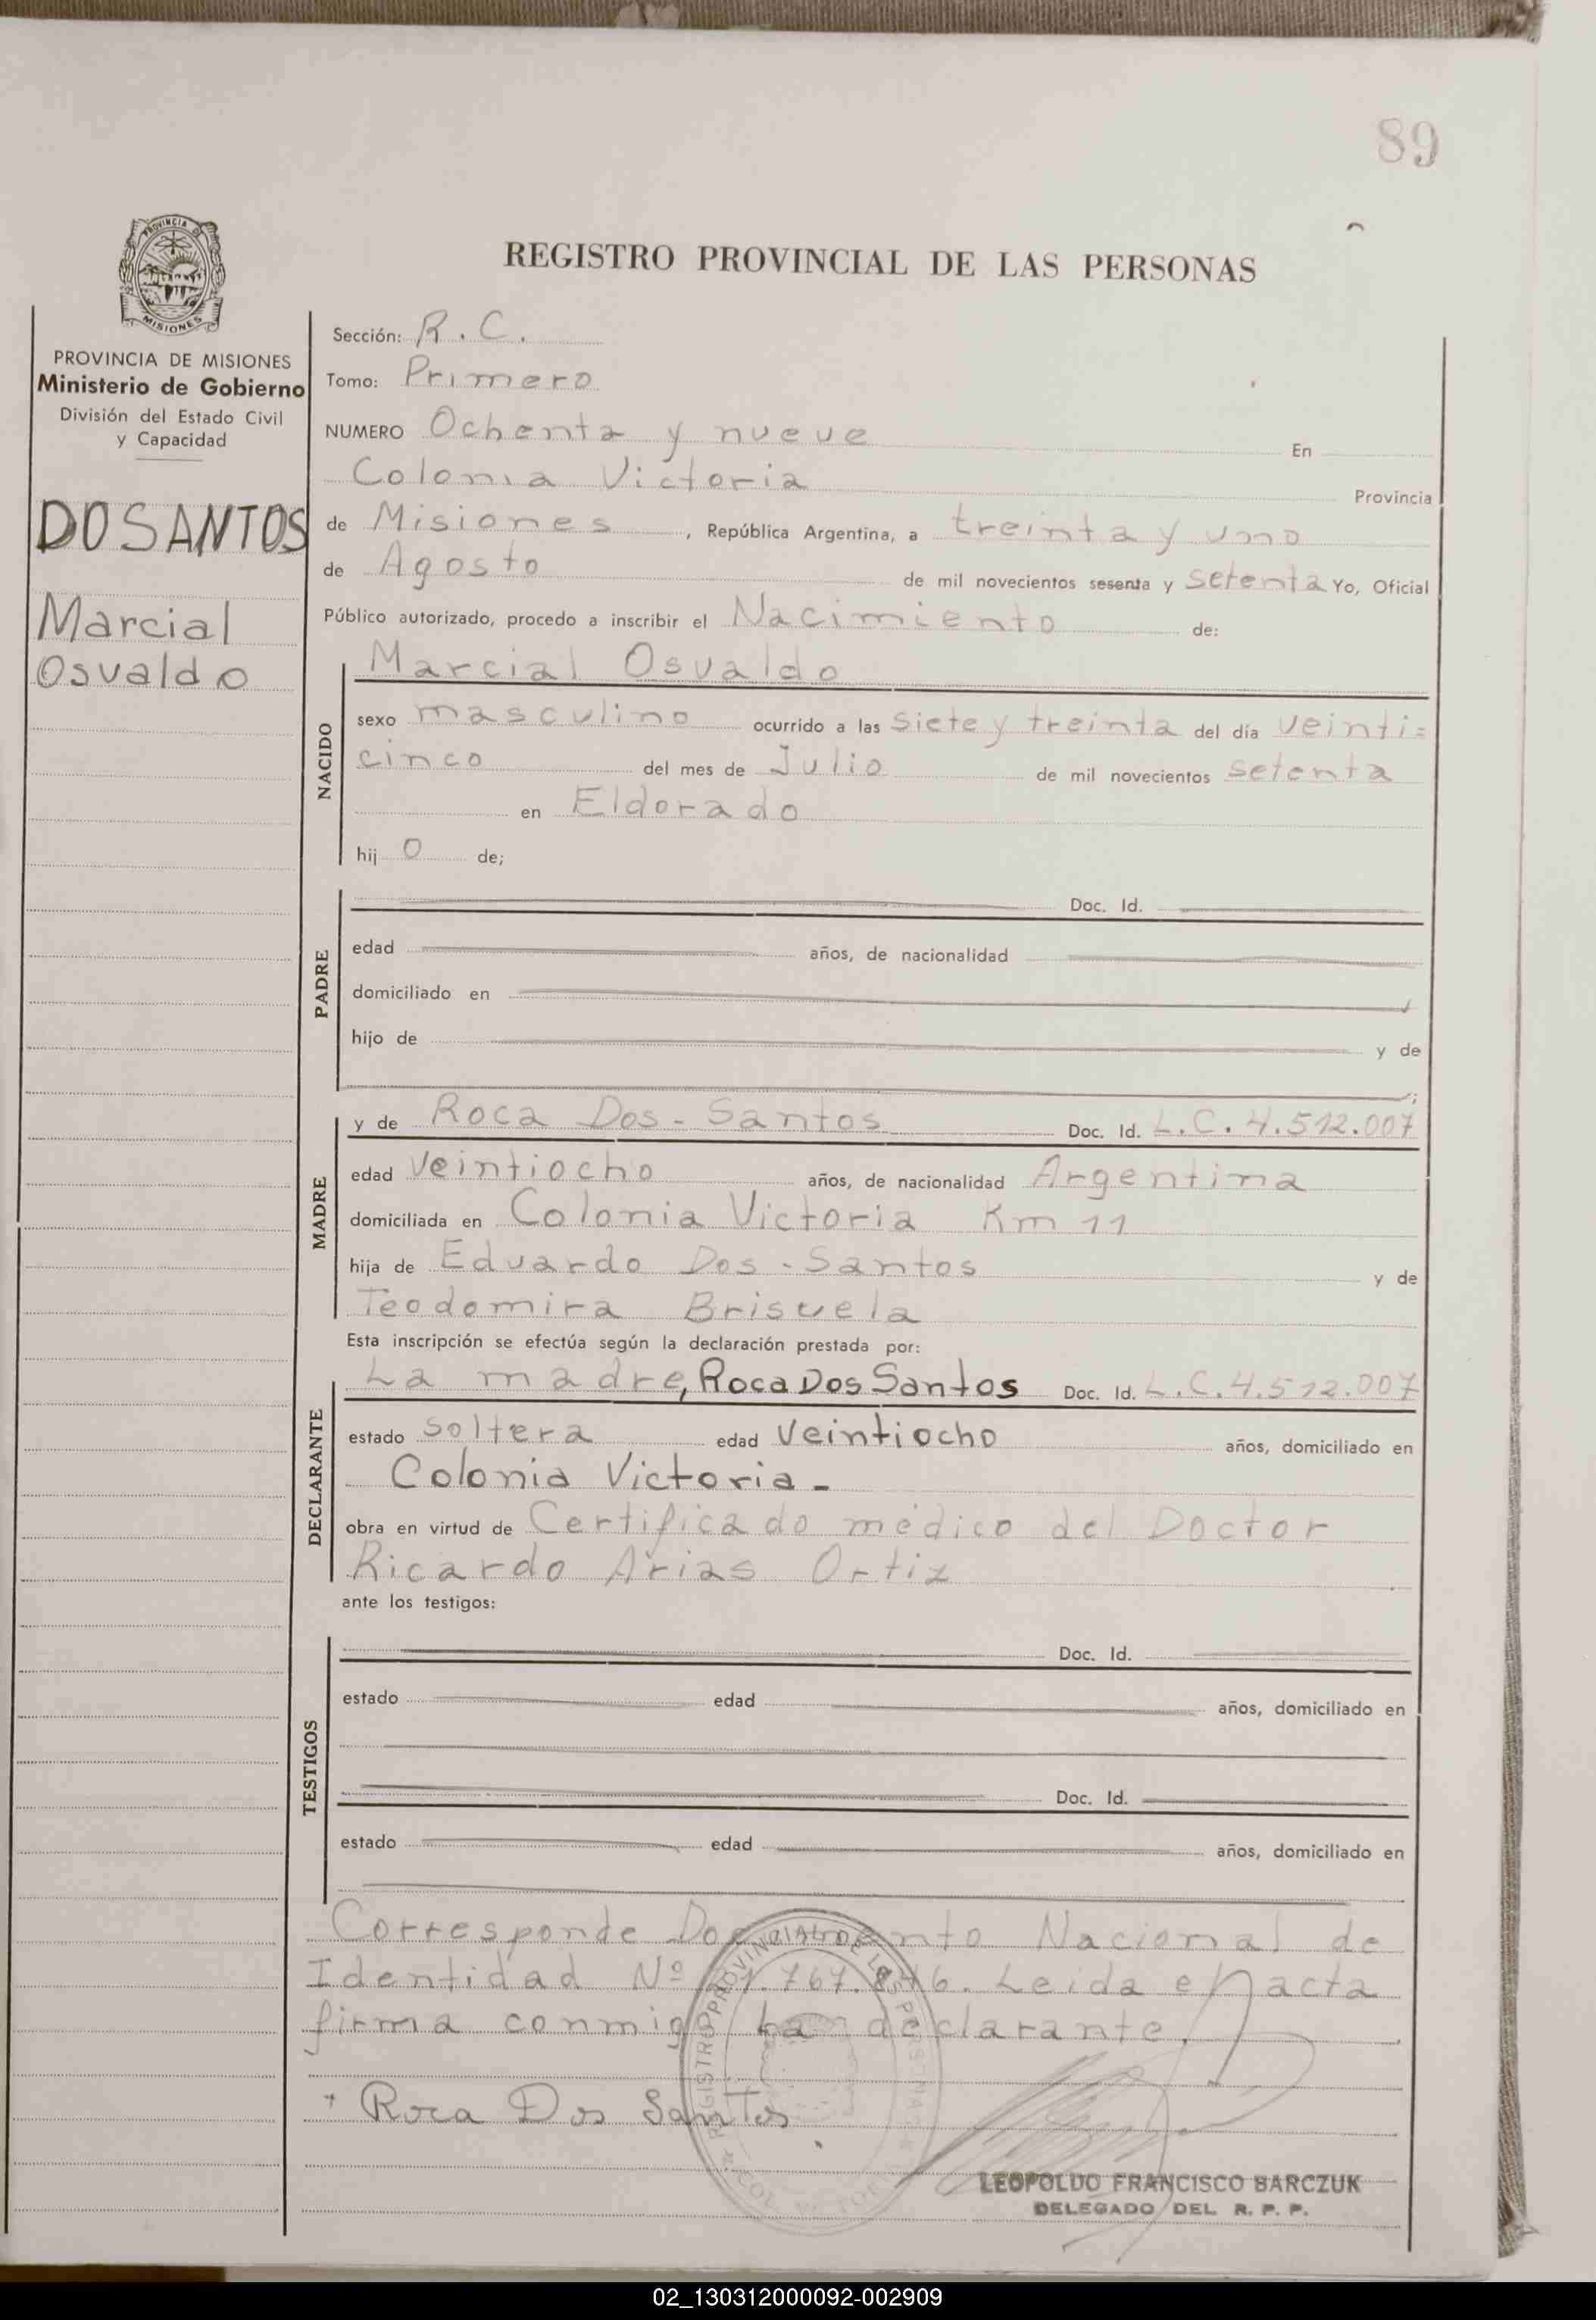 89
PROVINCIA DE
MISIONES
PROVINCIA DE MISIONES
Ministerio de Gobierno
División del Estado Civil
y Capacidad
DO SANTOS
Marcial
Osvaldo
REGISTRO PROVINCIAL DE LAS PERSONAS
Sección: R. C.
Tomo: Primero
NUMERO Ochenta y nueve En
Colonia Victoria Provincia
de Misiones, República Argentina, a treinta y uno
de Agosto de mil novecientos sesenta y setenta Yo, Oficial
Público autorizado, procedo a inscribir el Nacimiento de:
NACIDO
Marcial Osvaldo
sexo masculino ocurrido a las siete y treinta del día veinti=
cinco del mes de Julio de mil novecientos setenta
en Eldorado
hij o de;
PADRE
Doc. Id.
edad años, de nacionalidad
domiciliado en
hijo de y de
;
MADRE
y de Roca Dos - Santos Doc. Id. L.C. 4.512.007
edad veintiocho años, de nacionalidad Argentina
domiciliada en Colonia Victoria Km 11
hija de Eduardo Dos - Santos y de
Teodomira Brisuela
Esta inscripción se efectúa según la declaración prestada por:
DECLARANTE
La madre, Roca Dos Santos Doc. Id. L.C. 4.512.007
estado soltera edad Veintiocho años, domiciliado en
Colonia Victoria.-
obra en virtud de Certificado médico del Doctor
Ricardo Arias Ortiz
ante los testigos:
TESTIGOS
Doc. Id.
estado edad años, domiciliado en
Doc. Id.
estado edad años, domiciliado en
Corresponde Documento Nacional de
Identidad Nº Leida el acta
firma conmigo La declarante.
Roca Dos Santos
REGISTRO PROVINCIAL DE LAS PERSONAS
LEOPOLDO FRANCISCO BARCZUK
DELEGADO DEL R. P. P.
02_130312000092-002909